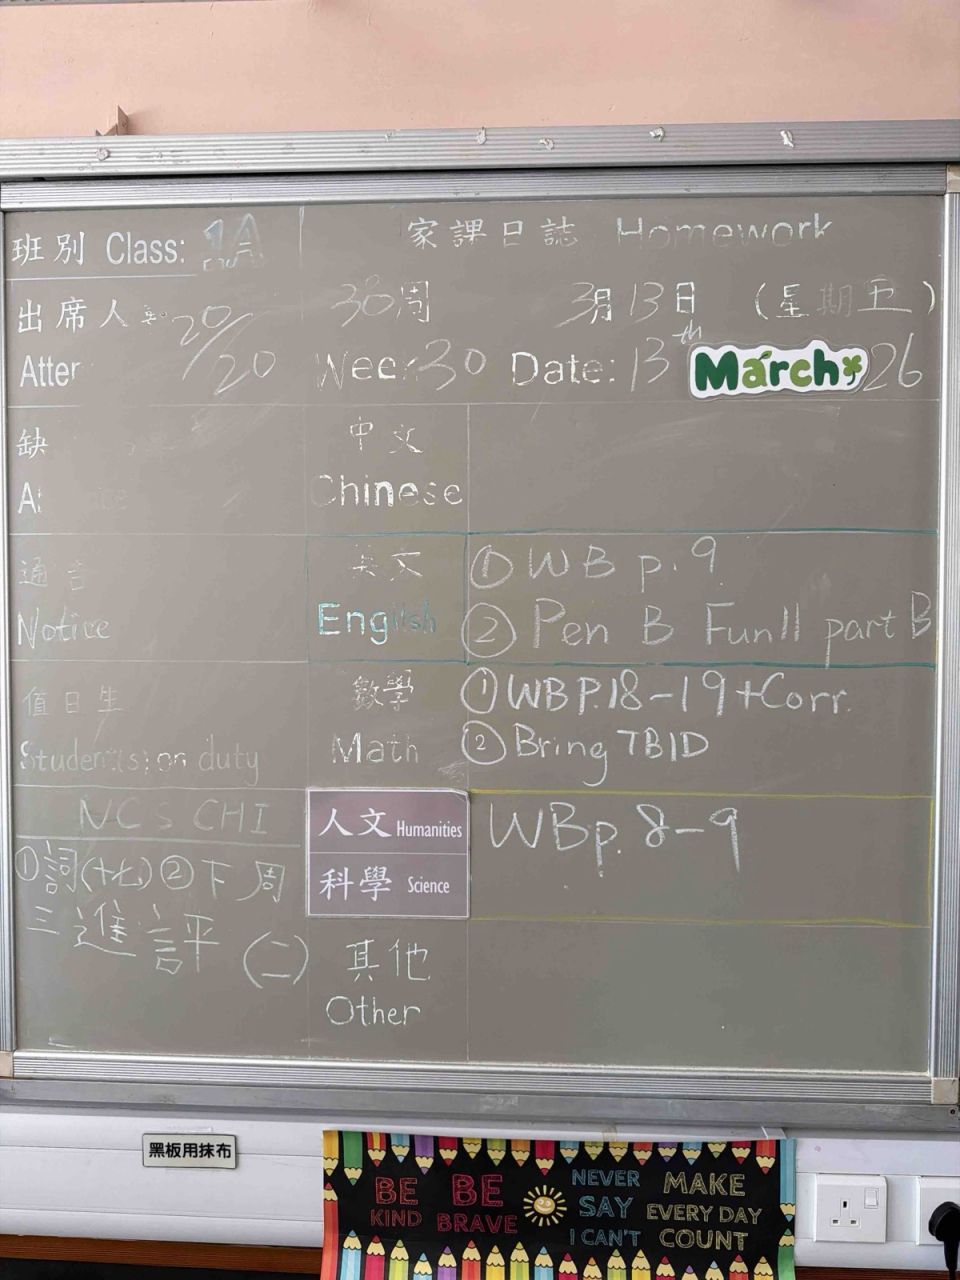 班別 Class: 1A
家課日誌 Homework
出席人 20/20
Atter
30周 3月13日 (星期五)
Week 30 Date: 13th March 26
缺
中文
Chinese
通告
Notice
英文
English
① WB p. 9
② Pen B Fun11 part B
值日生
Student(s) on duty
數學
Math
① WB P.18-19 + Corr.
② Bring TB1D
NCS CHI
① 詞(十七) ② 下周
三進評(二)
人文 Humanities
科學 Science
WB p. 8-9
其他
Other
黑板用抹布
BE KIND
BE BRAVE
NEVER SAY I CAN'T
MAKE EVERY DAY COUNT